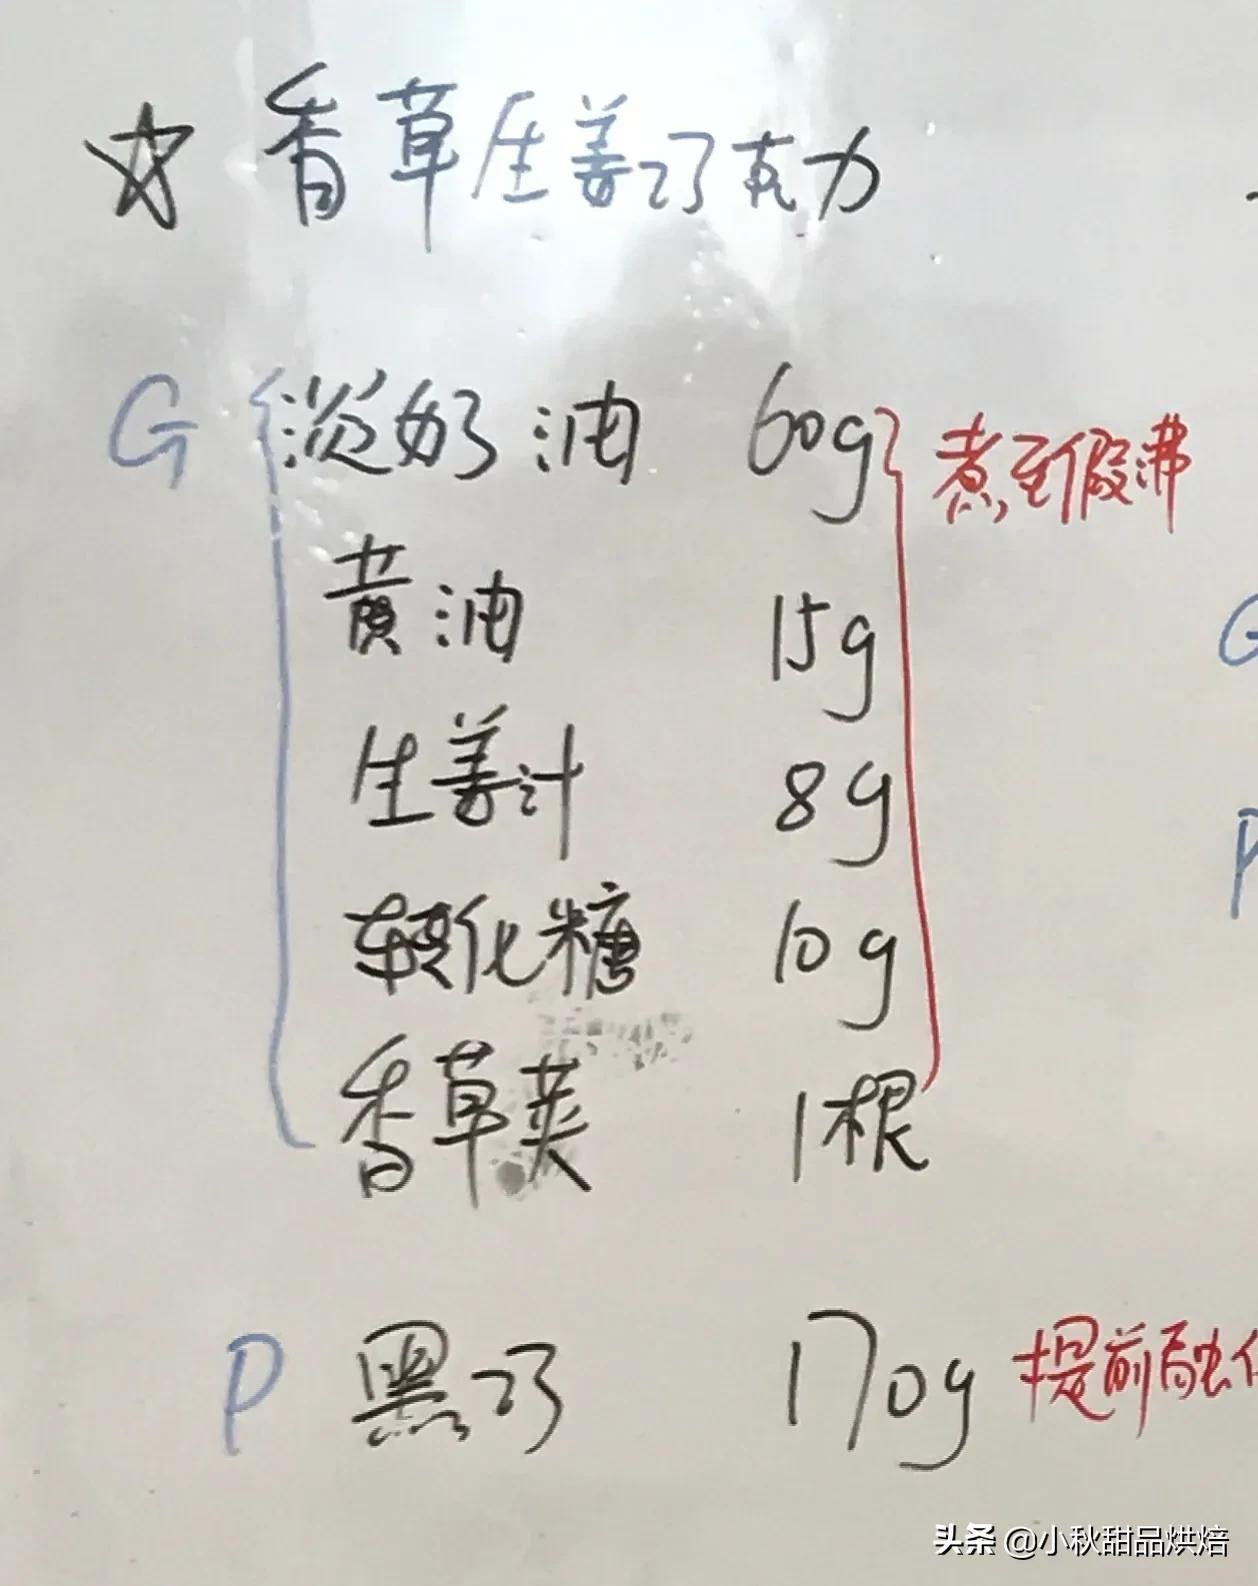 ☆ 香草生姜巧克力
G 淡奶油 60g 煮至假沸
黄油 15g
生姜汁 8g
转化糖 10g
香草荚 1根
G
P
P 黑巧 170g 提前融化
头条 @小秋甜品烘焙